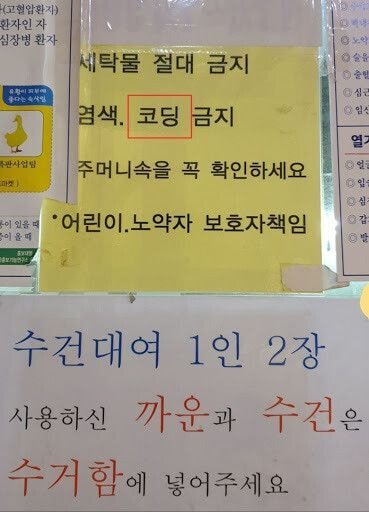 (고혈압환자)
환자인 자
심장병 환자
유황이 피부에
좋다는 속사임
특판사업팀
마켓)
증이 있을 때
증이 올 때
세탁물 절대 금지
염색. 코딩 금지
주머니속을 꼭 확인하세요
·어린이.노약자 보호자책임
수건대여 1인 2장
사용하신 까운과 수건은
수거함에 넣어주세요